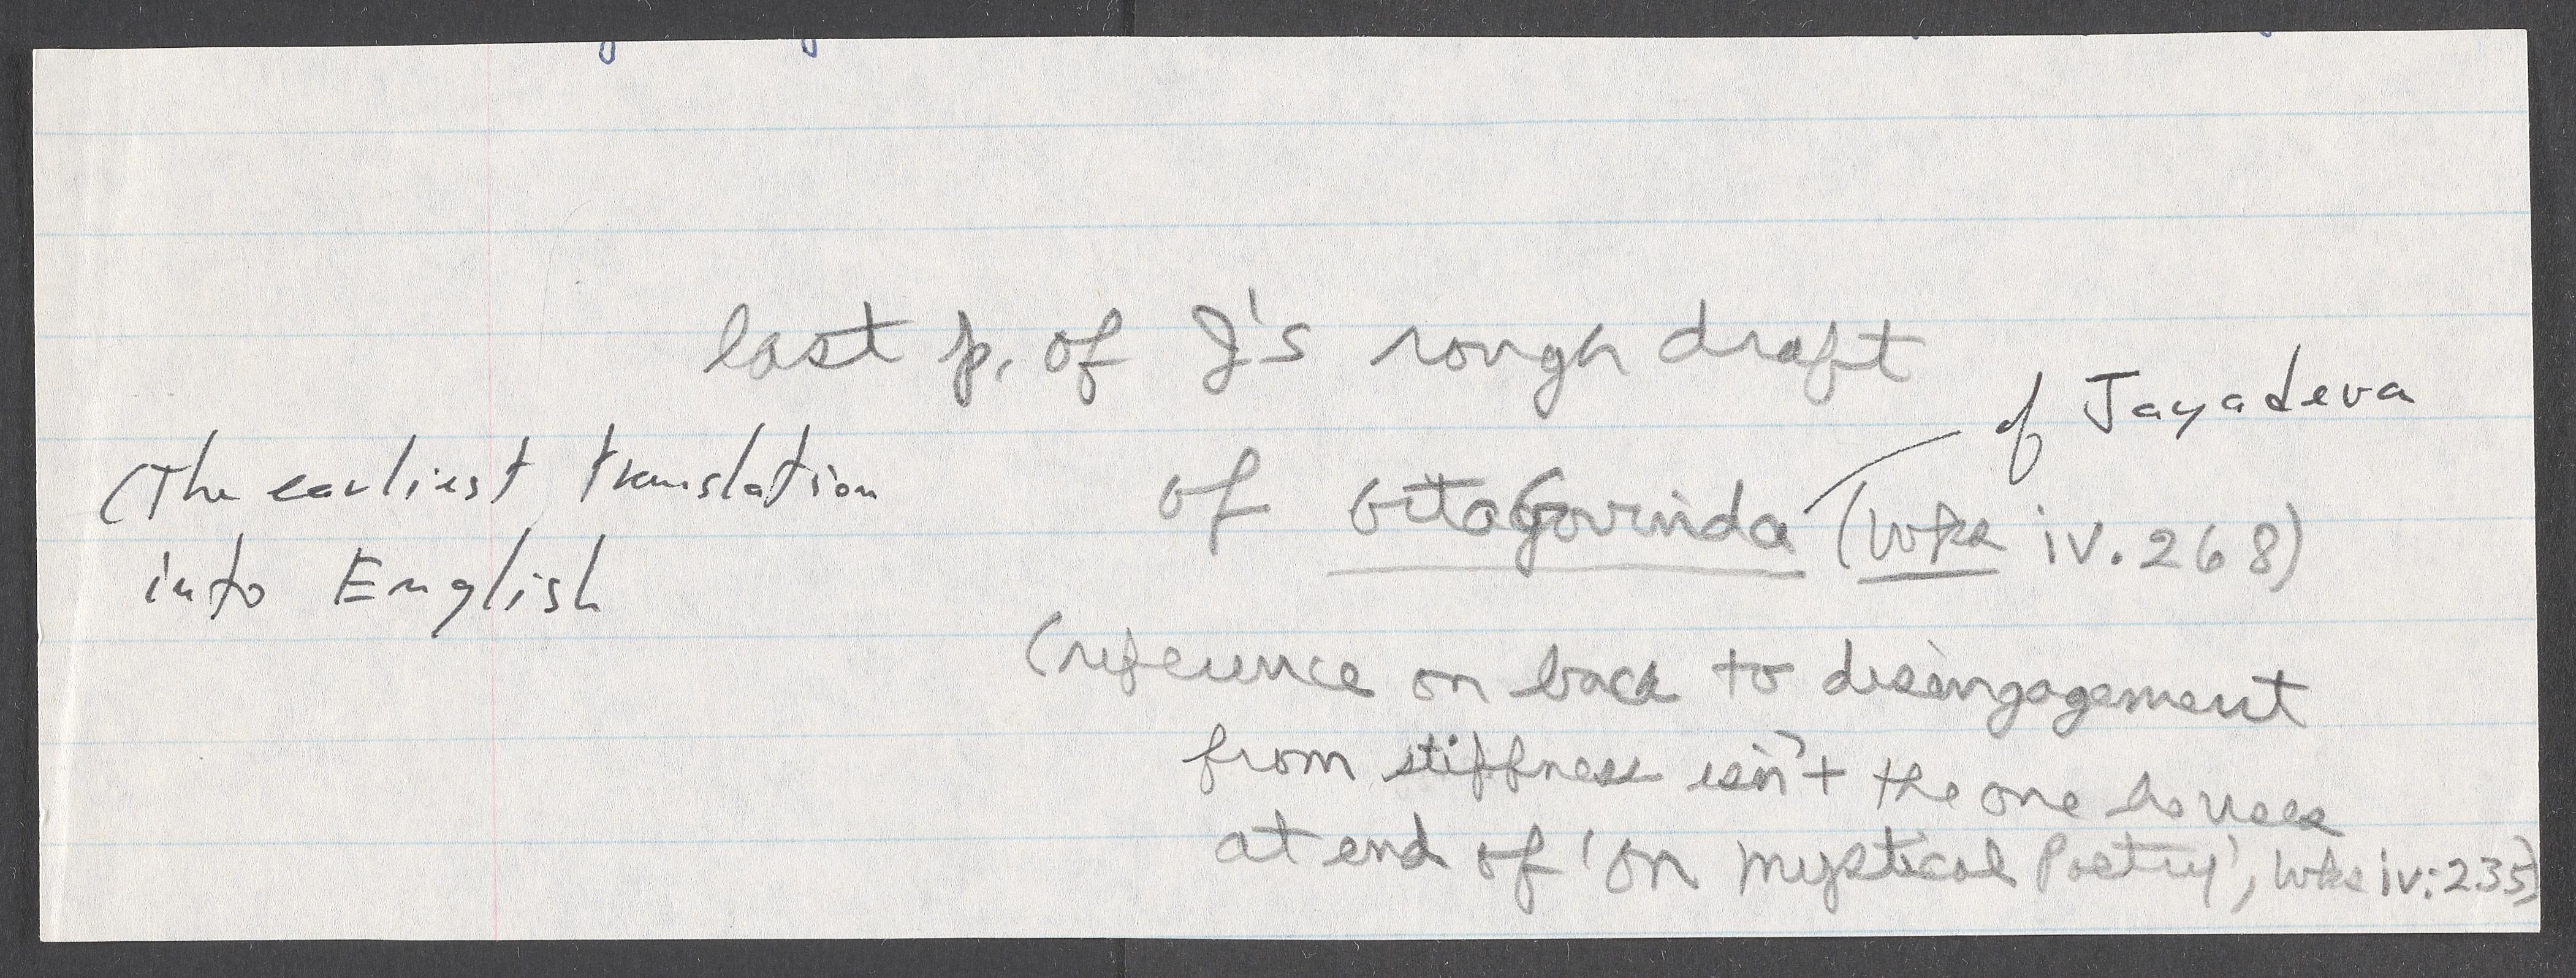 last p. of J's rough draft
of Jayadeva
of GitaGovinda (Wks iv. 268)
(The earliest translation
into English
(reference on back to disengagement
from stiffness isn't the one he uses
at end of 'On Mystical Poetry', Wks iv: 235)